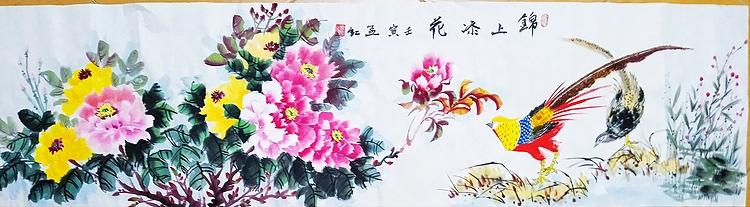 錦上添花 壬寅 孟红